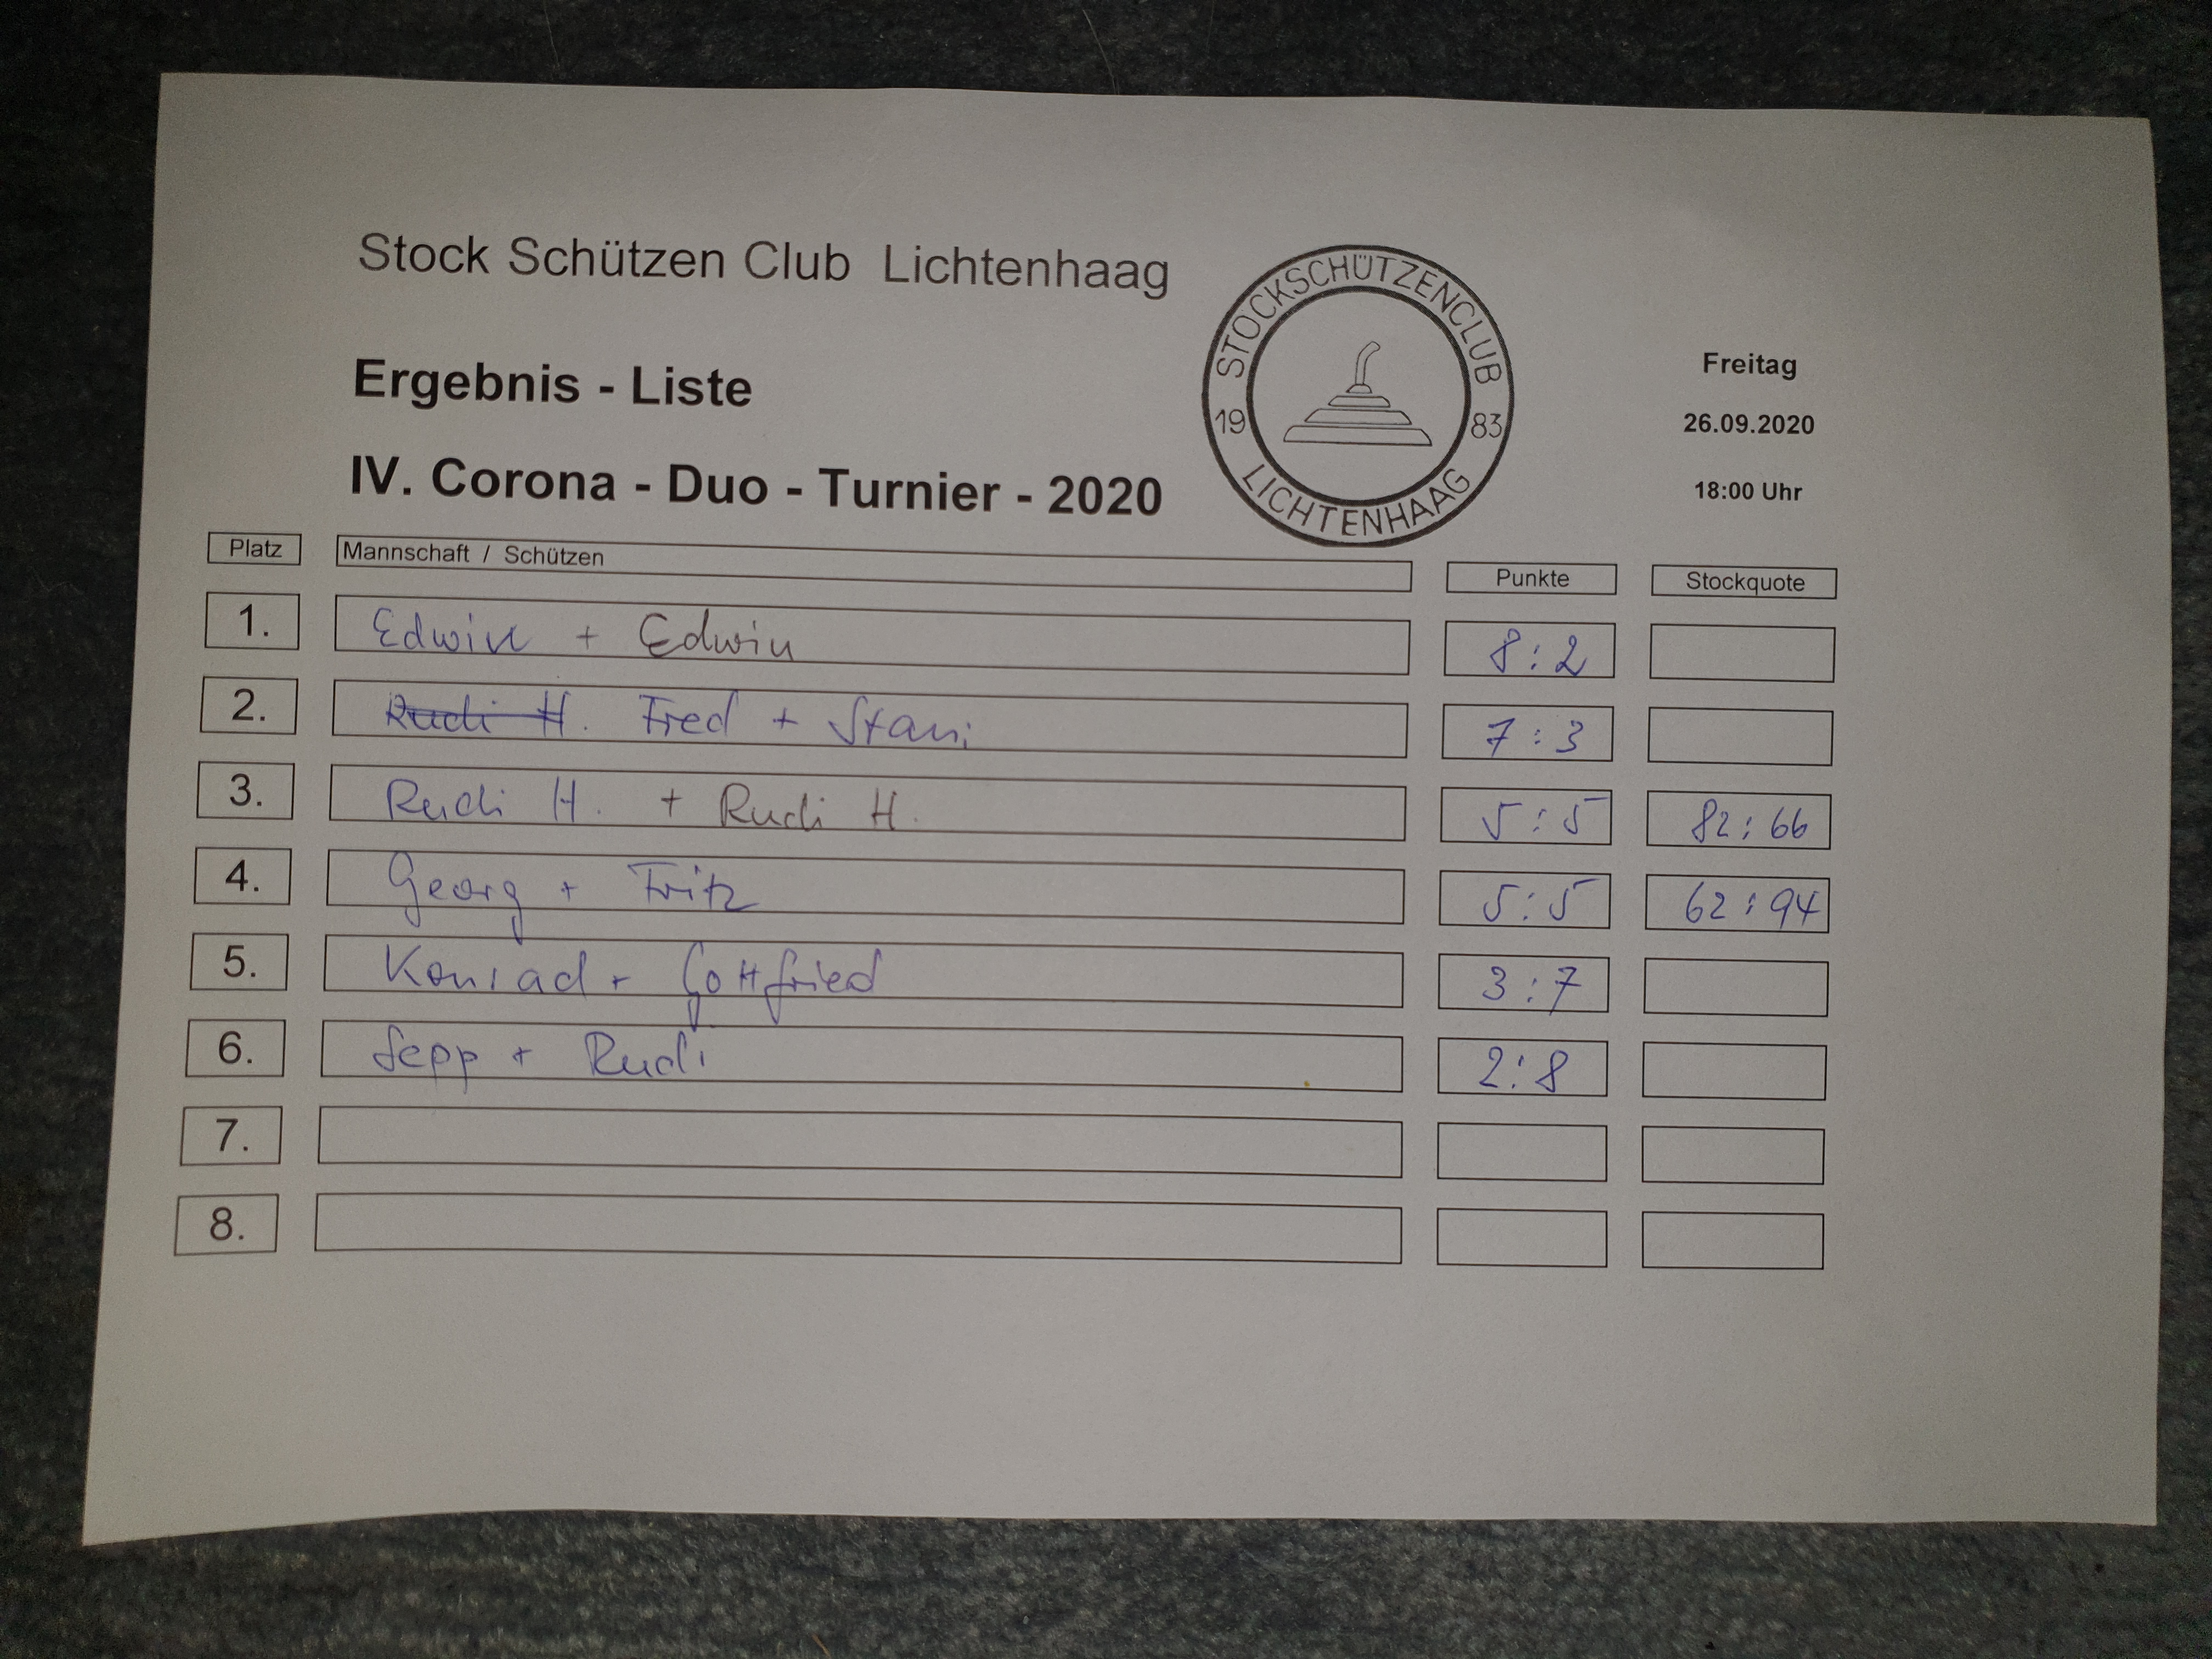 Stock Schützen Club Lichtenhaag
STOCKSCHÜTZENCLUB
19 83
LICHTENHAAG
Ergebnis - Liste
Freitag
26.09.2020
IV. Corona - Duo - Turnier - 2020
18:00 Uhr
Platz Mannschaft / Schützen Punkte Stockquote
1. Edwin + Edwin 8:2
2. Rudi H. Fred + Stani 7:3
3. Rudi H. + Rudi H. 5:5 82:66
4. Georg + Fritz 5:5 62:94
5. Konrad + Gottfried 3:7
6. Sepp + Rudi 2:8
7.
8.